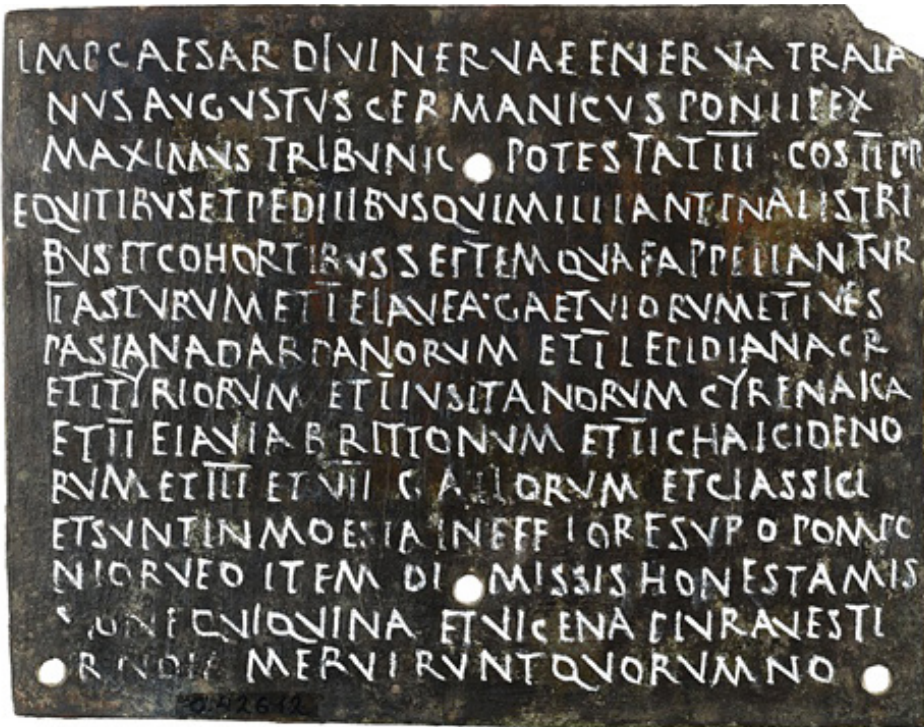 IMP CAESAR DIVI NERVAE F NERVA TRAIA
NVS AVGVSTVS GERMANICVS PONTIFEX
MAXIMVS TRIBVNIC POTESTAT III COS II PP
EQVITIBVS ET PEDITIBVS QVI MILITANT IN ALIS TRI
BVS ET COHORTIBVS SEPTEM QVAE APPELLANTVR
I ASTVRVM ET I FLAVEA GAETVLORVM ET I VES
PASIANA DARDANORVM ET I LEPIDIANA C R
ET I TYRIORVM ET I LVSITANORVM CYRENAICA
ET II FLAVIA BRITTONVM ET II CHALCIDENO
RVM ET III ET VII GALLORVM ET CLASSICI
ET SVNT IN MOESIA INFERIORE SVP Q POMPO
NIO RVFO ITEM DIMISSIS HONESTA MIS
SIONE QVI QVINA ET VICENA PLVRAVE STI
MERVIRVNT QVORVM NO